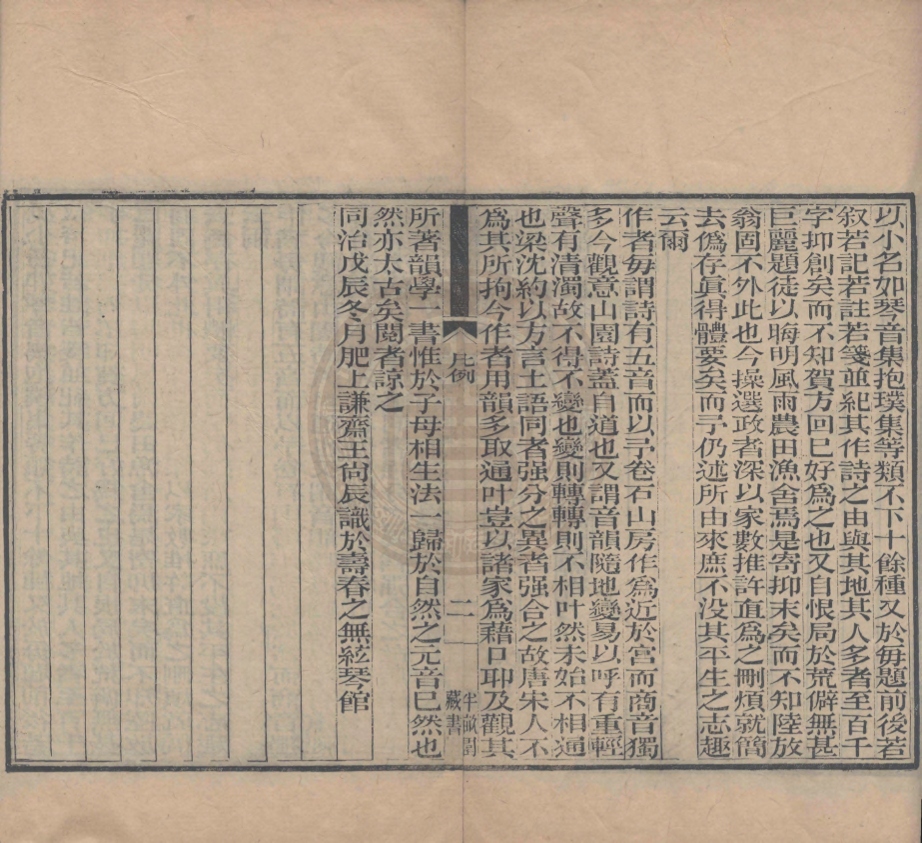 以小名如琴音集抱璞集等類不下十餘種又於每題前後若
叙若記若註若箋並紀其作詩之由與其地其人多者至百千
字抑創矣而不知賀方回已好爲之也又自恨局於荒僻無甚
巨麗題徒以晦明風雨農田漁舍焉是寄抑末矣而不知陸放
翁固不外此也今操選政者深以家數推許直爲之刪煩就簡
去僞存眞得體要矣而予仍述所由來庶不没其平生之志趣
云爾
作者每謂詩有五音而以予卷石山房作爲近於宫而商音獨
多今觀意山園詩蓋自道也又謂音韻隨地變易以呼有重輕
聲有清濁故不得不變也變則轉轉則不相叶然未始不相通
也梁沈約以方言土語同者强分之異者强合之故唐宋人不
爲其所拘今作者用韻多取通叶豈以諸家爲藉口耶及觀其
凡例
二
半畝園
藏書
所著韻學一書惟於子母相生法一歸於自然之元音已然也
然亦太古矣閱者諒之
同治戊辰冬月肥上謙齋王尙辰識於壽春之無絃琴館